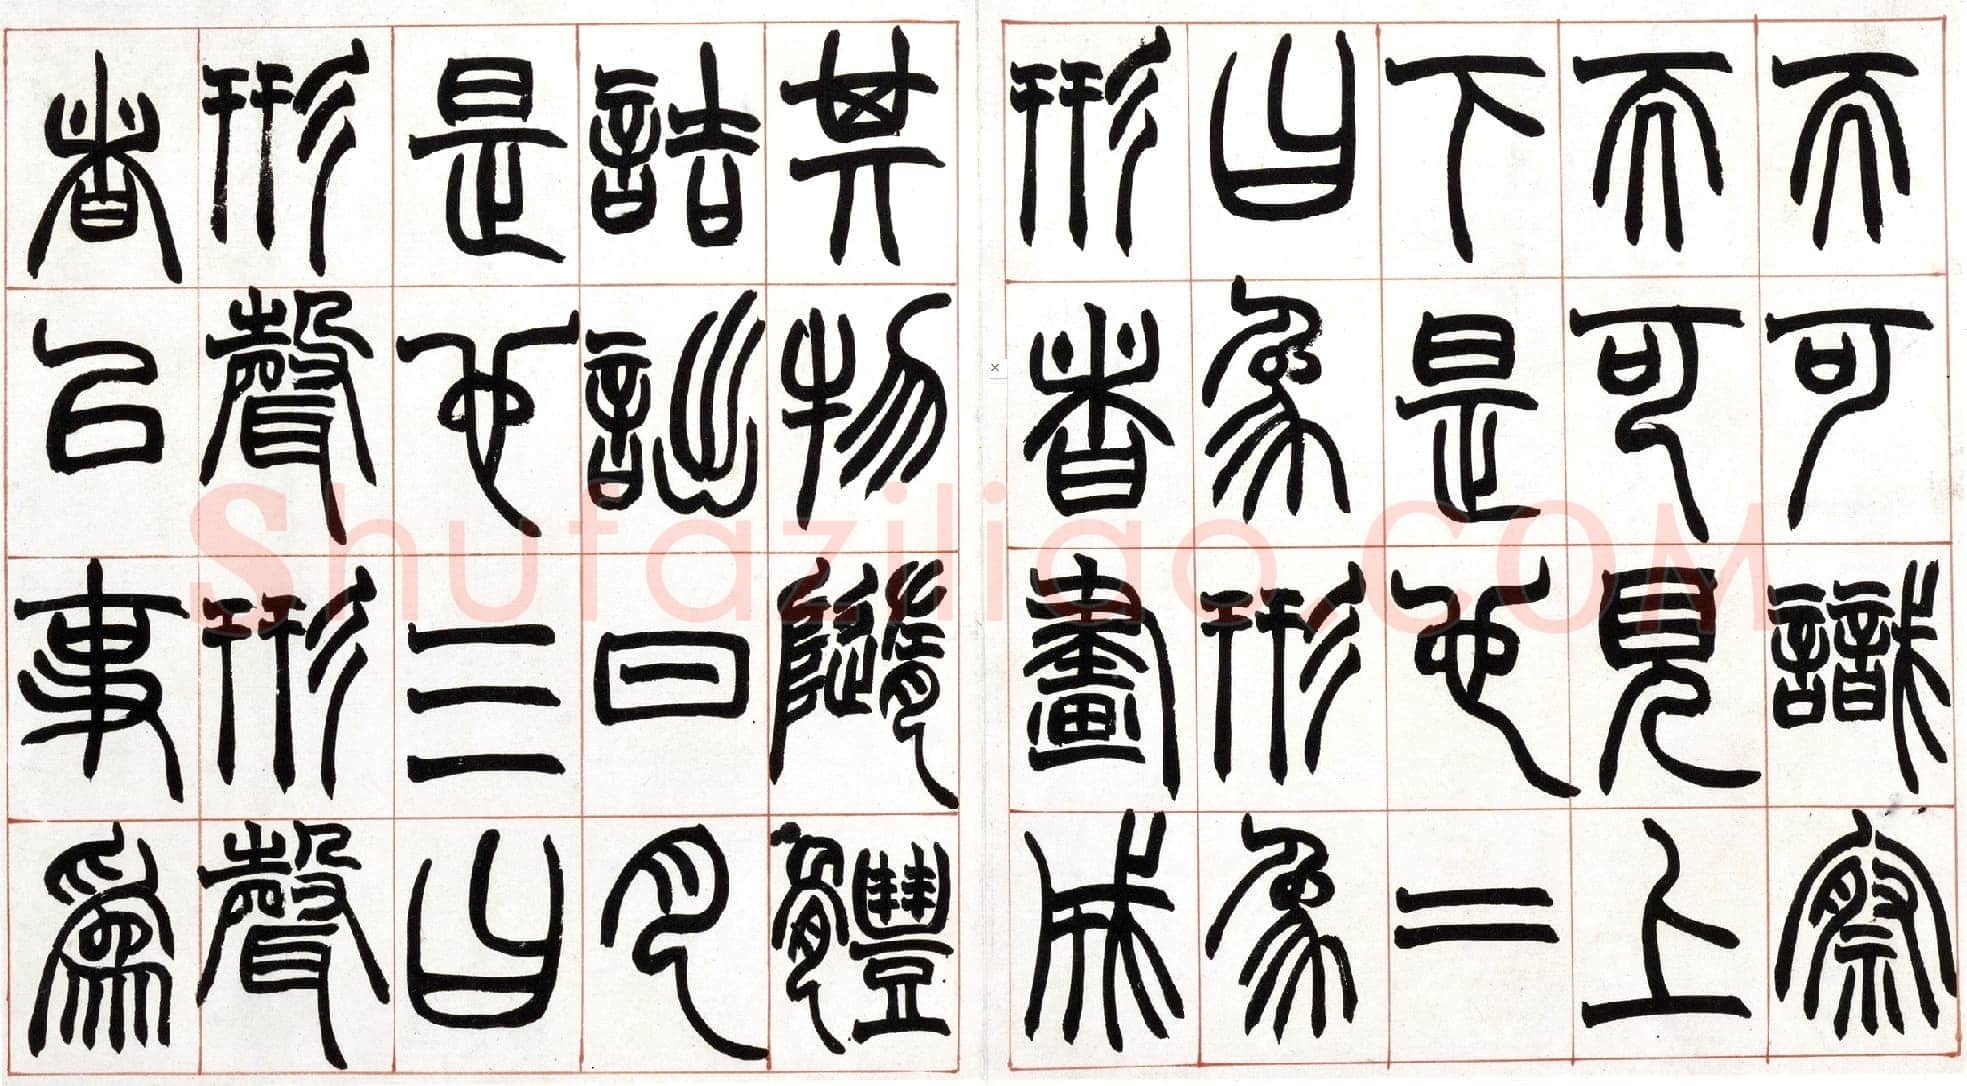 而可識察
而可見上
下是也二
曰象形象
形者畫成
其物隨體
詰詘日月
是也三曰
形聲形聲
者以事爲
Shufaziliao.COM